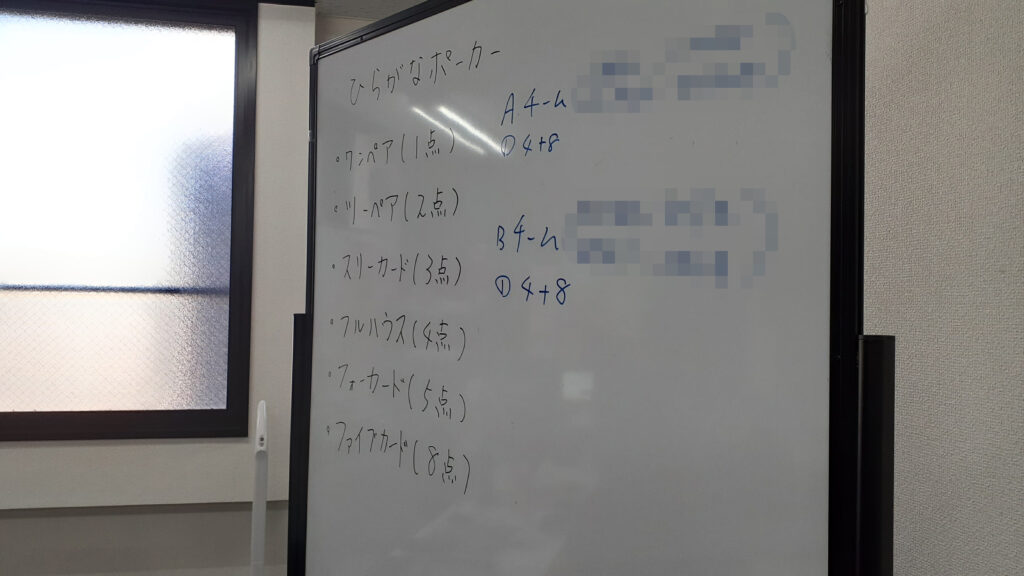 ひらがなポーカー
・ワンペア(1点)
・ツーペア(2点)
・スリーカード(3点)
・フルハウス(4点)
・フォーカード(5点)
・ファイブカード(8点)
Aチーム
① 4+8
Bチーム
① 4+8